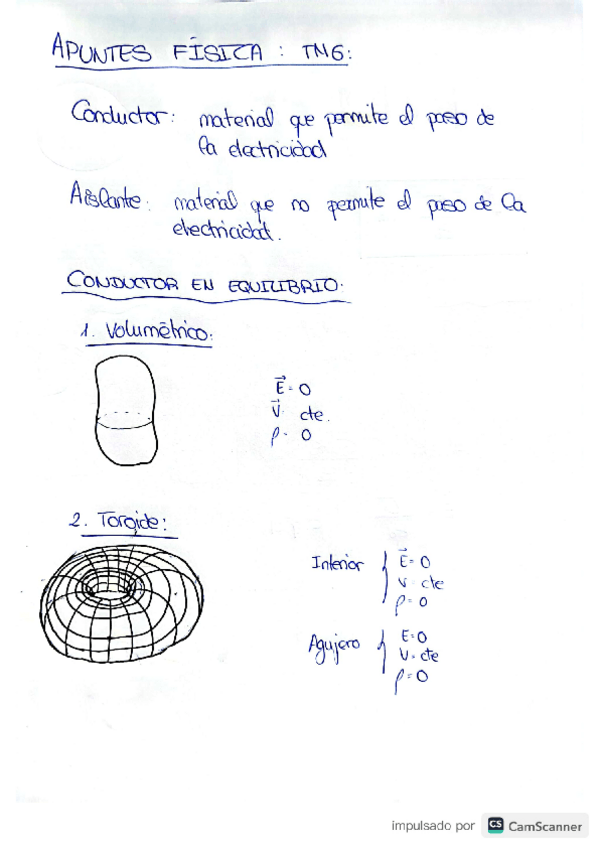 APUNTES FÍSICA : TM6:
Conductor: material que permite el paso de
la electricidad
Aislante: material que no permite el paso de la
electricidad.
CONDUCTOR EN EQUILIBRIO:
1. Volumétrico:
E⃗ = 0
V⃗ cte.
ρ = 0
2. Toroide:
Interior { E⃗ = 0
V cte
ρ = 0
Agujero { E = 0
V = cte
ρ = 0
impulsado por CS CamScanner